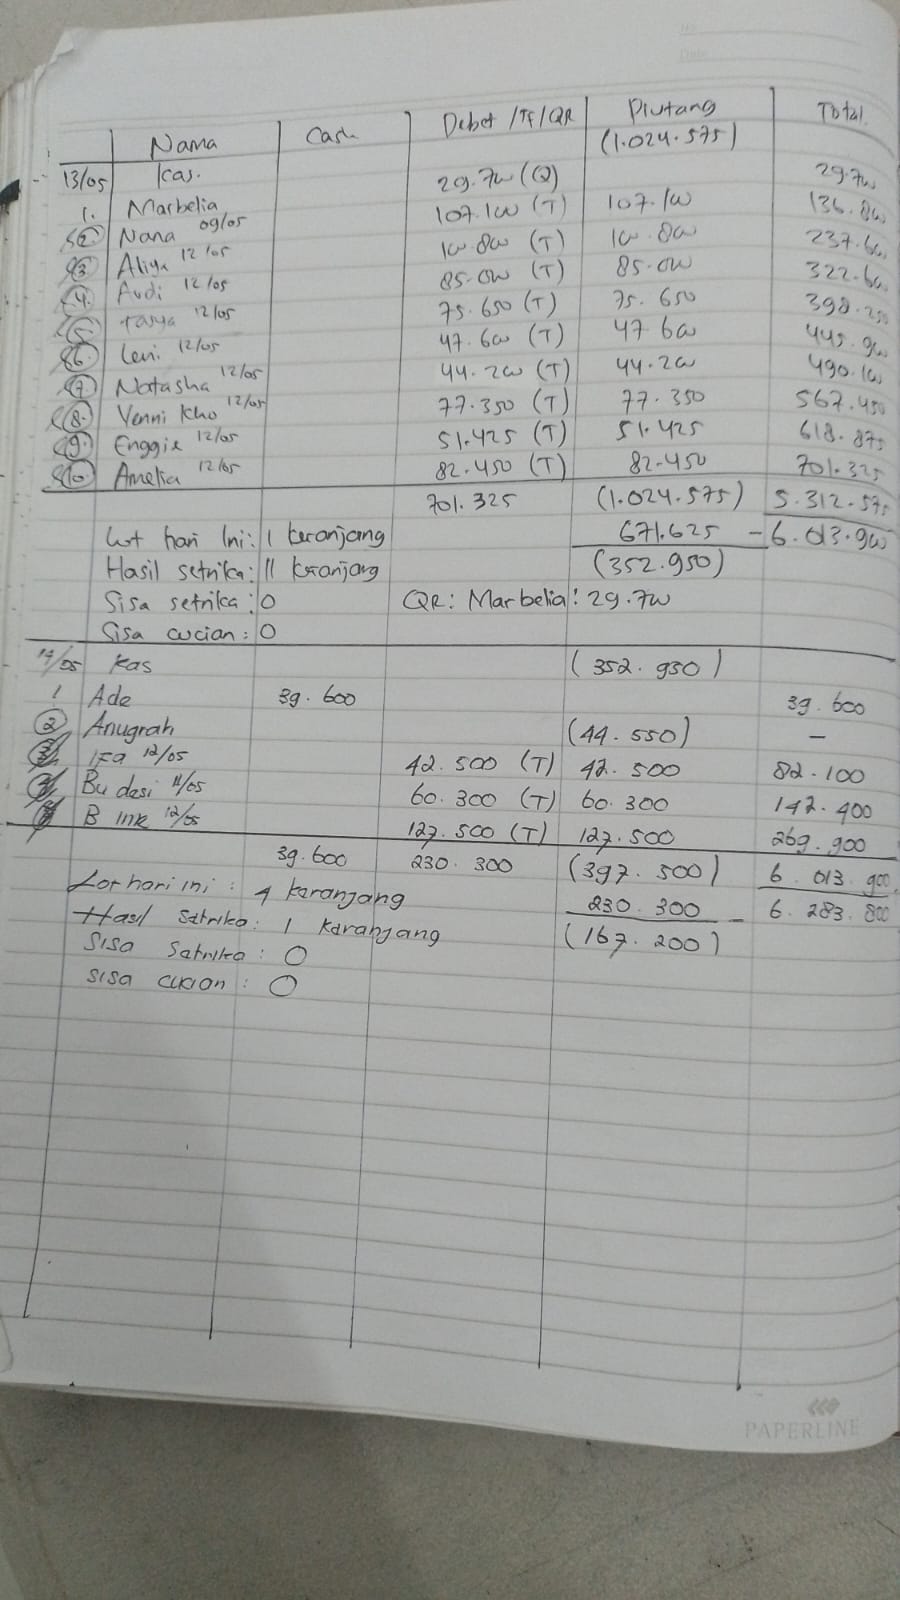 No.
Date
Nama Cash Debet /TF/QR Piutang Total
13/05 Kas. (1.024.575)
1. Marbelia 29.700 (Q) 29.700
2. Nana 09/05 107.100 (T) 107.100 136.800
3. Aliya 12/05 100.800 (T) 100.800 237.600
4. Audi 12/05 85.000 (T) 85.000 322.600
5. Tasya 12/05 75.650 (T) 75.650 398.250
6. Leni 12/05 47.600 (T) 47.600 445.900
7. Natasha 12/05 44.200 (T) 44.200 490.100
8. Venni Kho 12/05 77.350 (T) 77.350 567.450
9. Enggie 12/05 51.425 (T) 51.425 618.875
10. Amelia 12/05 82.450 (T) 82.450 701.325
701.325 (1.024.575) 5.312.575
Lot hari Ini: 1 keranjang 671.625 - 6.013.900
Hasil setrika: 11 kranjang (352.950)
Sisa setrika: 0 QR: Marbelia: 29.700
Sisa cucian: 0
14/05 Kas (352.950)
1 Ade 39.600 39.600
2 Anugrah (44.550) -
3. IFa 12/05 42.500 (T) 42.500 82.100
Bu desi 11/05 60.300 (T) 60.300 142.400
B Ink 12/05 127.500 (T) 127.500 269.900
39.600 230.300 (397.500) 6.013.900
Lot hari ini : 4 keranjang 230.300 - 6.283.800
Hasil Setrika: 1 Karanjang (167.200)
SISA Setrika : 0
SISA CUCIAN : 0
PAPERLINE